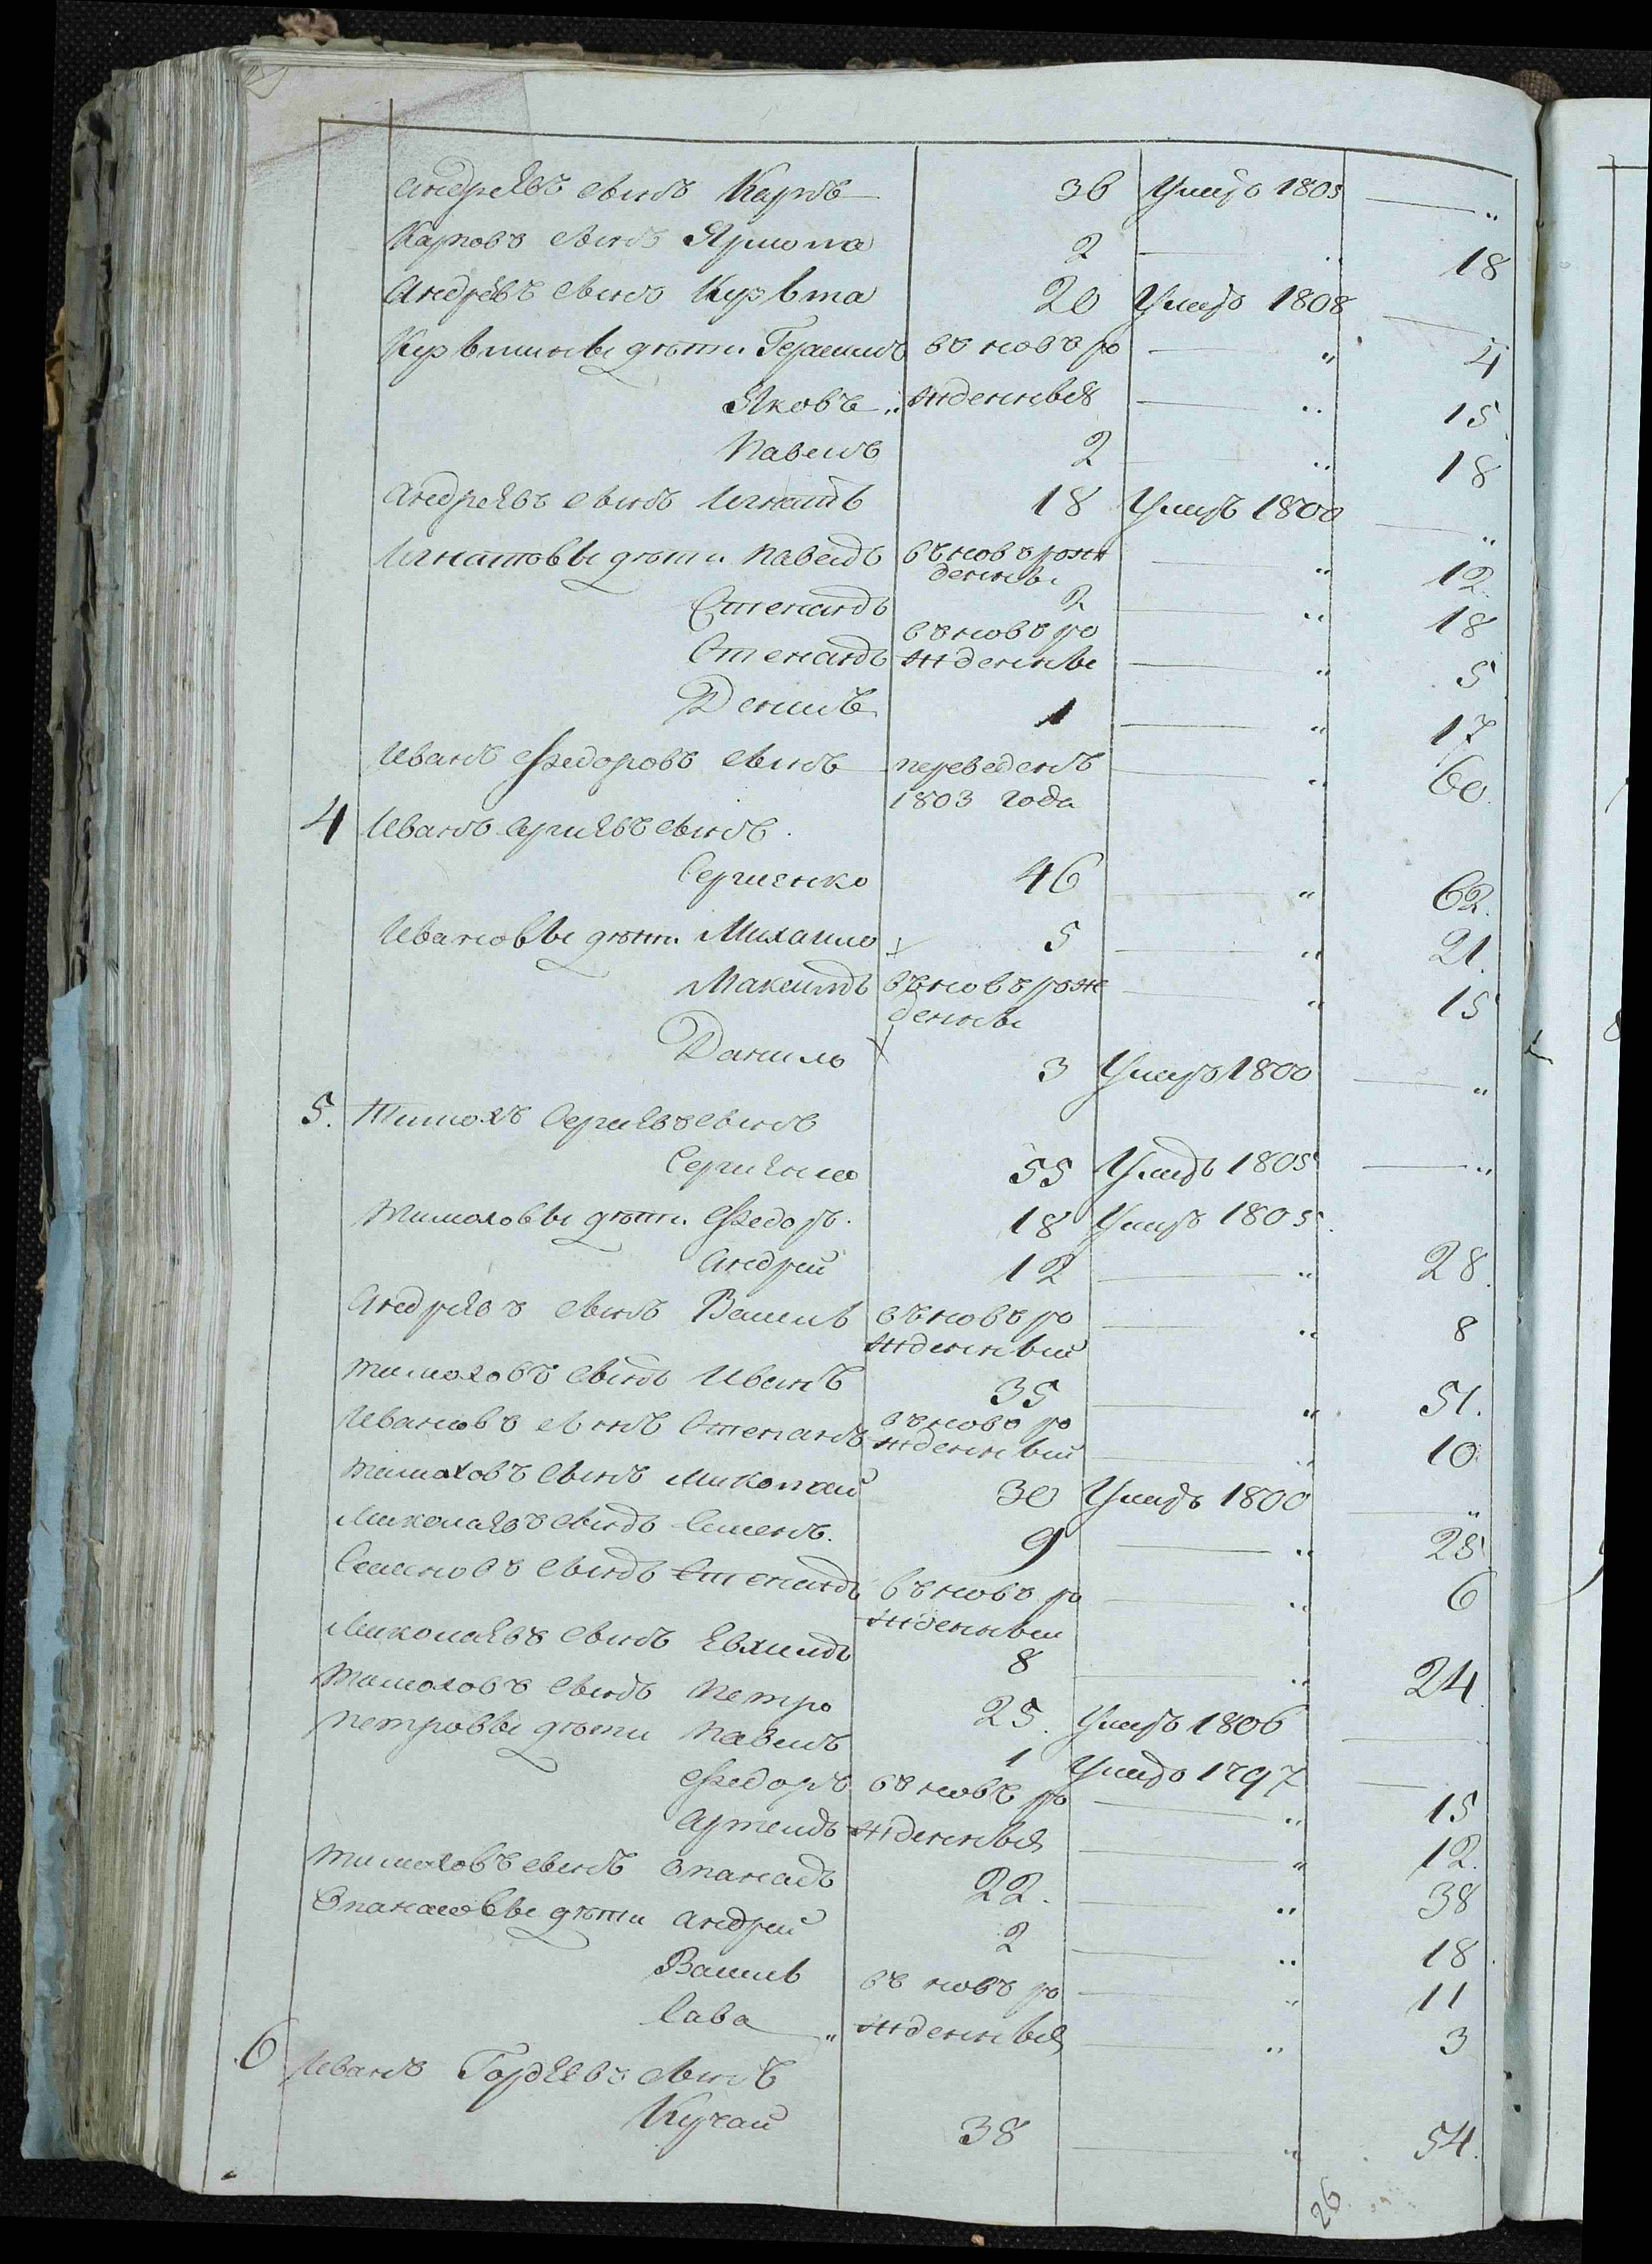 Андреявъ сынъ Карпъ 36 Умеръ 1805 — "
Карповъ сынъ Ярмола 2 — " 18
Андреевъ сынъ Курьта 20 Умеръ 1808 —
дети Герасимъ въ новъ ро — " 4
Яковъ " жденныя — " 15
Павелъ 2 — " 18
Андреявъ сынъ Игнатъ 18 Умеръ 1800 — "
Игнатовы дети Павелъ въ новъ рож — " 12
денны
Степанъ 2 — " 18
въ новъ ро
Степанъ жденны — " 5
Денисъ 1 — " 17
Иванъ Федоровъ сынъ переведенъ — " 60.
1803 года
4 Иванъ Сергиявъ сынъ
Сергиенко 46 — " 62.
Ивановы дети Михаило 5 — " 21.
Максимъ въ новъ рож — " 15
денны
Данило 3 Умеръ 1800 — "
5. Тимохъ Сергиявъ сынъ
Сергиенко 55 Умеръ 1805 — "
Тимоховы дети Федоръ. 18 Умеръ 1805.
Андрей 12 — " 28.
Андреявъ сынъ Василь въ новъ ро — " 8
жденный
Тимоховъ сынъ Иванъ 35 — " 51.
Ивановъ сынъ Степанъ въ новъ ро
жденный — " 10
Тимоховъ сынъ Миколай 30 Умеръ 1800 — "
Миколаявъ сынъ Семенъ. 9 — " 25
Семеновъ сынъ Степанъ въ новъ ро — " 6
жденный
Миколаявъ сынъ Евхимъ 8 — " 24
Тимоховъ сынъ Петро 25. Умеръ 1806 —
Петровы дети Павелъ 1 Умеръ 1797 —
Федоръ въ новъ ро — " 15
Артемъ жденныя — " 12.
Тимоховъ сынъ Опанасъ 22. — " 38
Опанасовы дети Андрей 2 — " 18.
Василь въ новъ ро — " 11
Сава " жденныя — " 3
6 Иванъ Гордеевъ сынъ
Кучай 38 — " 54.
26